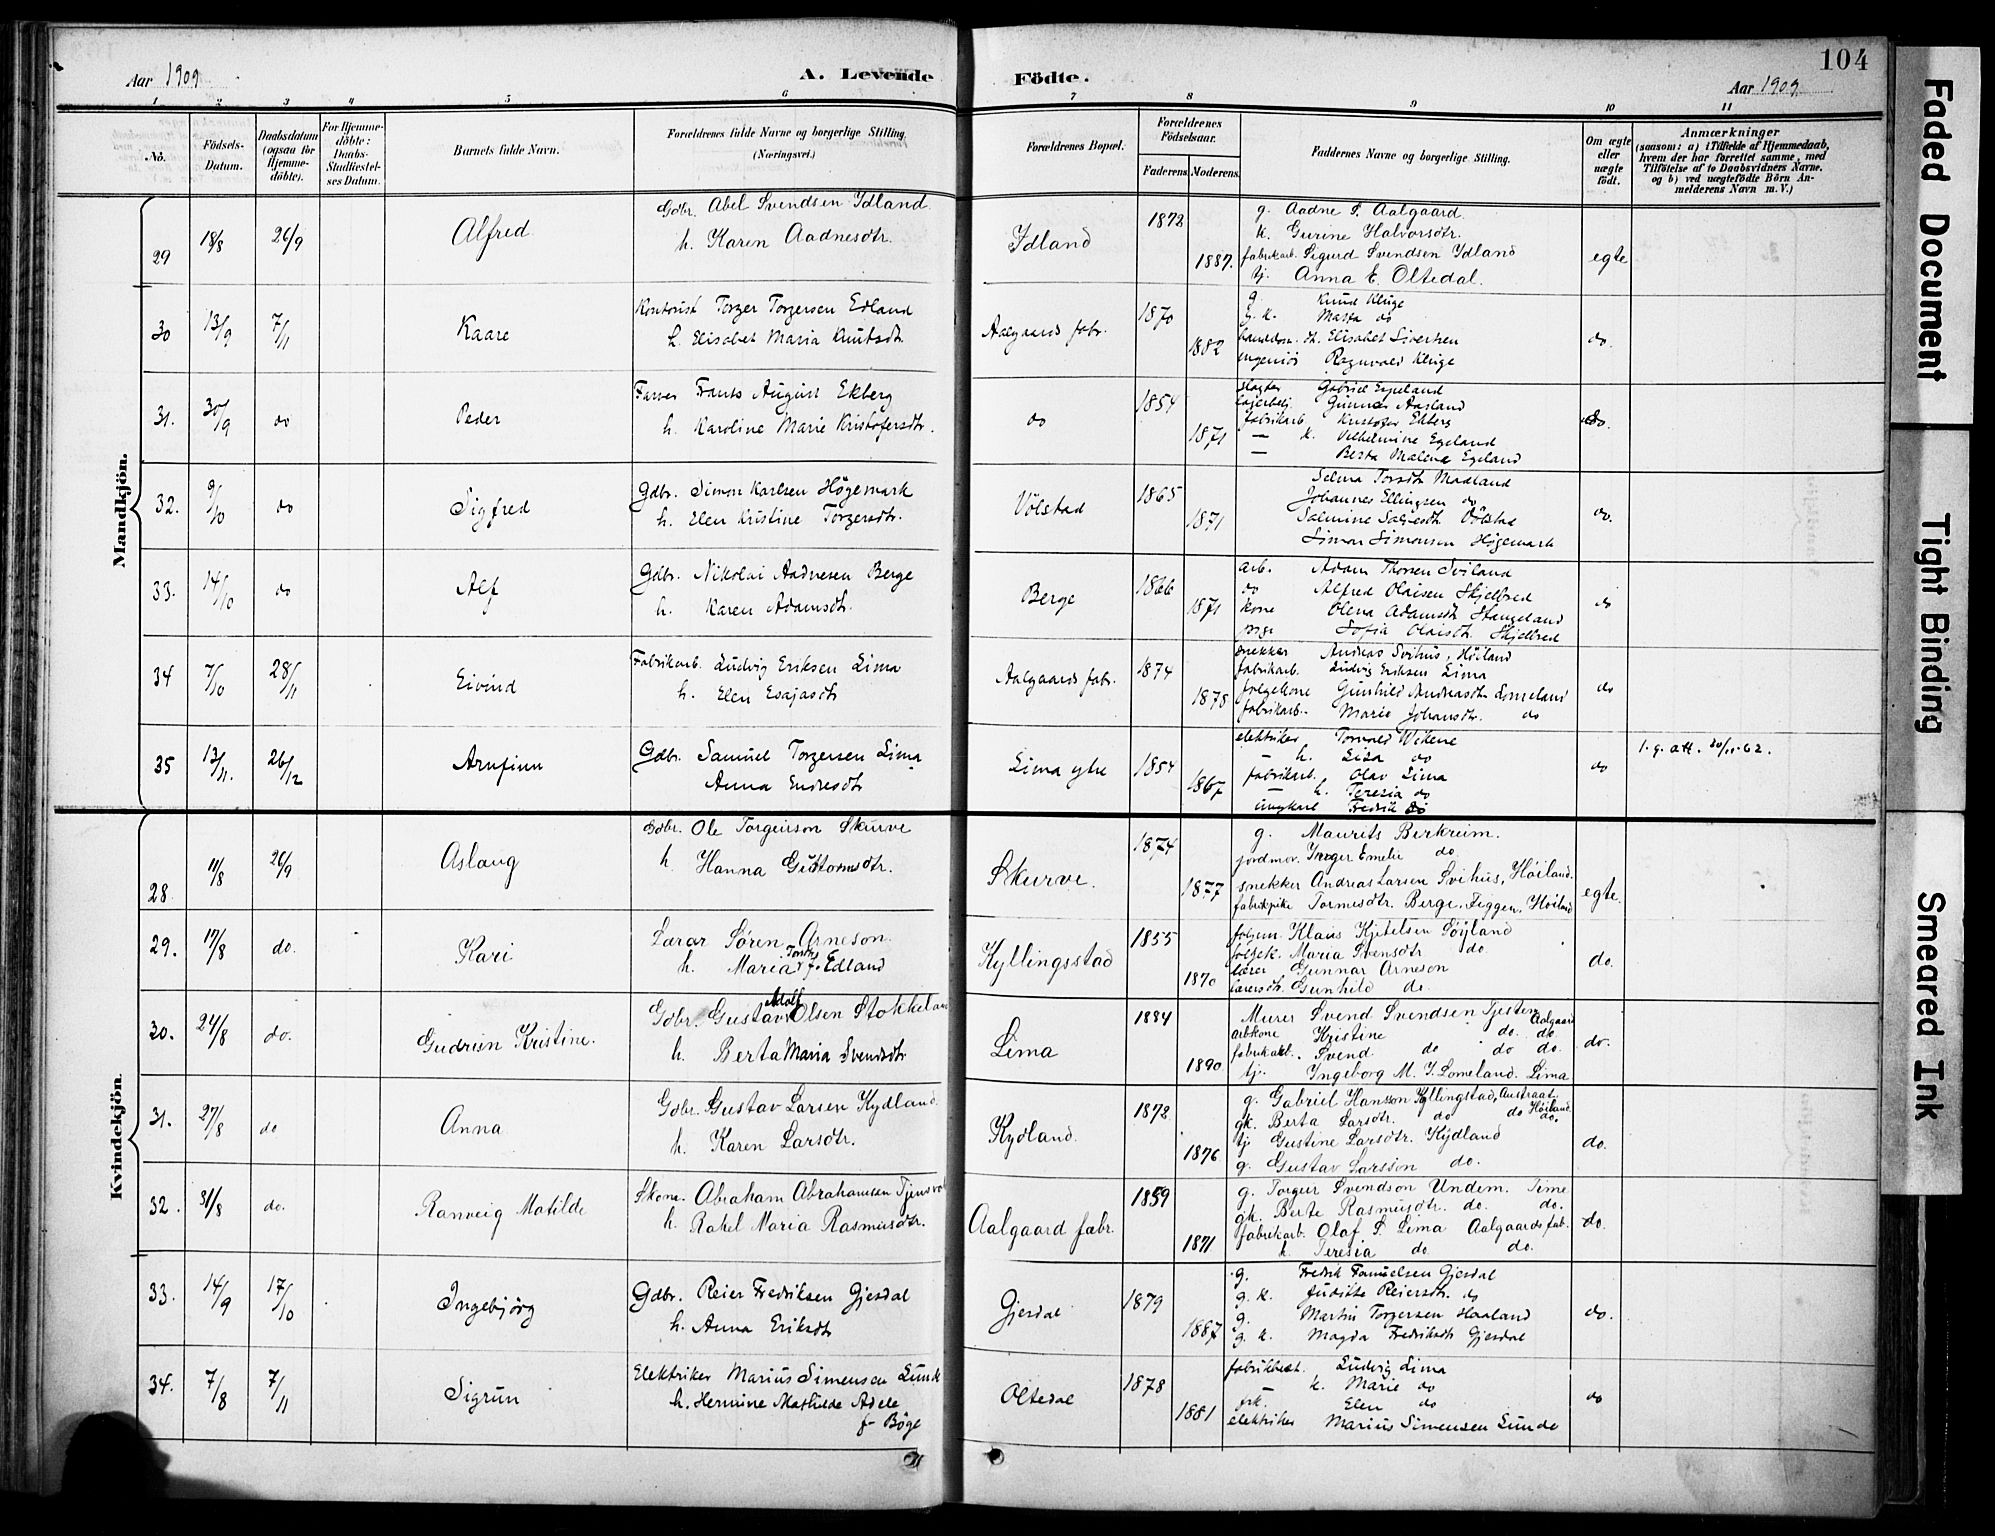 104
Aar 1909
A. Levende
Födte.
Aar 1909.
1 2 3 4 5 6 7 8 9 10 11
No.
Födsels-Datum.
Daabsdatum (ogsaa for Hjemme-döbte).
For Hjemme-döbte: Daabs-Stadfæstel-ses Datum.
Barnets fulde Navn.
Forældrenes fulde Navne og borgerlige Stilling. (Næringsvei.)
Forældrenes Bopæl.
Forældrenes Födselsaar.
Faderens. Moderens.
Faddernes Navne og borgerlige Stilling.
Om ægte eller uægte födt.
Anmærkninger
(saasom: a) i Tilfælde af Hjemmedaab, hvem der har forrettet samme, med Tilföielse af to Daabsvidners Navne, og b) ved uægtefödte Börn An-melderens Navn m. V.)
Mandkjön.
29 18/8 26/9 Alfred
Gdbr. Abel Svendsen Ydland
h. Karen Aadnesdtr.
Ydland 1872 1887.
g. Aadne S. Aalgaard.
k. Gurine Halvorsdtr.
fabrikarb. Sigurd Svendsen Ydland
tj. Anna E. Oltedal.
egte
30 13/9 7/11 Kaare
Kontorist Torger Torgersen Edland
h. Elisabet Maria Knutsdt.
Aalgaards fabr. 1870 1882
g. Knud Kluge
g. k. Marta do
Elisabet Sivertsen
ingeniör Ragnvald Kluge
do.
31. 30/9 do Peder
Farver Frants August Ekberg
h. Karoline Marie Kristofersdtr.
do 1854 1871
slagter Gabriel Egeland
Gunnar Aasland
fabrikarb. Kristofer Ekberg
— k. Vilhelmine Egeland
— Berta Malene Egeland
do.
32. 9/10 do Sigfred
Gdbr. Simon Karlsen Högemark
h. Elen Kristine Torgersdtr.
Völstad 1865 1871
Selma Torsdt Madland
Johannes Ellingsen do
Salmine Salvesdt. Völstad
Simon Simonsen Högemark
do.
33. 14/10 do Alf
Gdbr. Nikolai Aadnesen Berge
h. Karen Adamsdt.
Berge 1866 1871
arb. Adam Thorsen Sviland
do Alfred Olaisen Skjelbred
kone Olena Adamsdt. Stangeland
pige Sofia Olaisdt. Skjelbred
do
34 7/10 28/11 Eivind
Fabrikarb. Ludvig Eriksen Lima
h. Elen Esajasdt
Aalgaards fabr. 1874 1878
snekker Andreas Svihus, Höiland
fabrikarb. Ludvig Eriksen Lima
folgekone Gunhild Andreasdt. Lomeland
fabrikarb. Marie Johansdtr. do
do
35 13/11. 26/12 Arnfinn
Gdbr. Samuel Torgersen Lima
Anna Endresdtr
Lima ytre 1854 1867
elektriker Torvald Wikene
— h. Lisa do
fabrikarb. Olav Lima
— h. Teresia do
ungkarl Fredrik do
do
1. g. att. 20/11-62.
Kvindekjön.
28. 11/8 26/9 Aslaug
Gdbr. Ole Torgeirson Skurve
h. Hanna Guttormsdtr.
Skurve. 1874 1877
g. Maurits Berkreim.
jordmor. Inger Emelie do
snekker Andreas Larsen Svihus, Höiland.
fabrikpike Tormesdtr. Berge, Figgen, Höiland
egte.
29. 17/8 do. Kari
Lærar Sören Arneson.
h. Maria Torsdtr f. Edland
Kyllingsstad 1855 1870
folgem. Klaus Kjetelsen Söyland
folgek. Maria Svensdtr do.
lærer Gunnar Arneson
lærersdt. Gunhild do.
do.
30. 24/8 do. Gudrun Kristine.
Gdbr. Gustav Adolf Olsen Stokkeland
h. Berta Maria Svendsdtr
Lima 1884 1890
Murer Svend Svendsen Tjesten Aalgaard
arbkone Kristine do. do.
fabrikarb. Svend do do do.
tj. Ingeborg M. J. Lomeland. Lima
do.
31. 27/8 do Anna
Gdbr. Gustav Larsen Kydland.
h. Karen Larsdtr.
Kydland. 1872 1876
g. Gabriel Hansson Kyllingstad, Austraat, Höiland.
gk. Berta Larsdtr. do do do.
tj. Gustine Larsdtr. Kydland
g. Gustav Larsson do.
do.
32. 31/8 do. Ranveig Matilde
Skom. Abraham Abrahamsen Tjensvol
h. Rakel Maria Rasmusdtr.
Aalgaard fabr. 1859 1871
g. Torger Svendson Undem. Time
gk. Berte Rasmusdtr. do. do.
fabrikarb. Olaf S. Lima Aalgaards fab.
h. Teresia do do.
do.
33. 14/9 17/10 Ingebjörg
Gdbr. Reier Fredriksen Gjesdal
h. Anna Eriksdt
Gjesdal 1879 1887
g. Fredrik Samuelsen Gjesdal
g. k. Juditte Reiersdtr. do
g. Martin Torgersen Haaland
g. k. Magda Fredriksdt Gjesdal
do.
34. 7/8 7/11 Sigrun
Elektriker Marius Simensen Lunde
h. Hermine Mathilde Adele
f. Böge
Oltedal 1878 1881
Ludvig Lima
— k. Marie do
frk. Elen do
elektriker Marius Simensen Lunde
do
Faded Document
Tight Binding
Smeared Ink